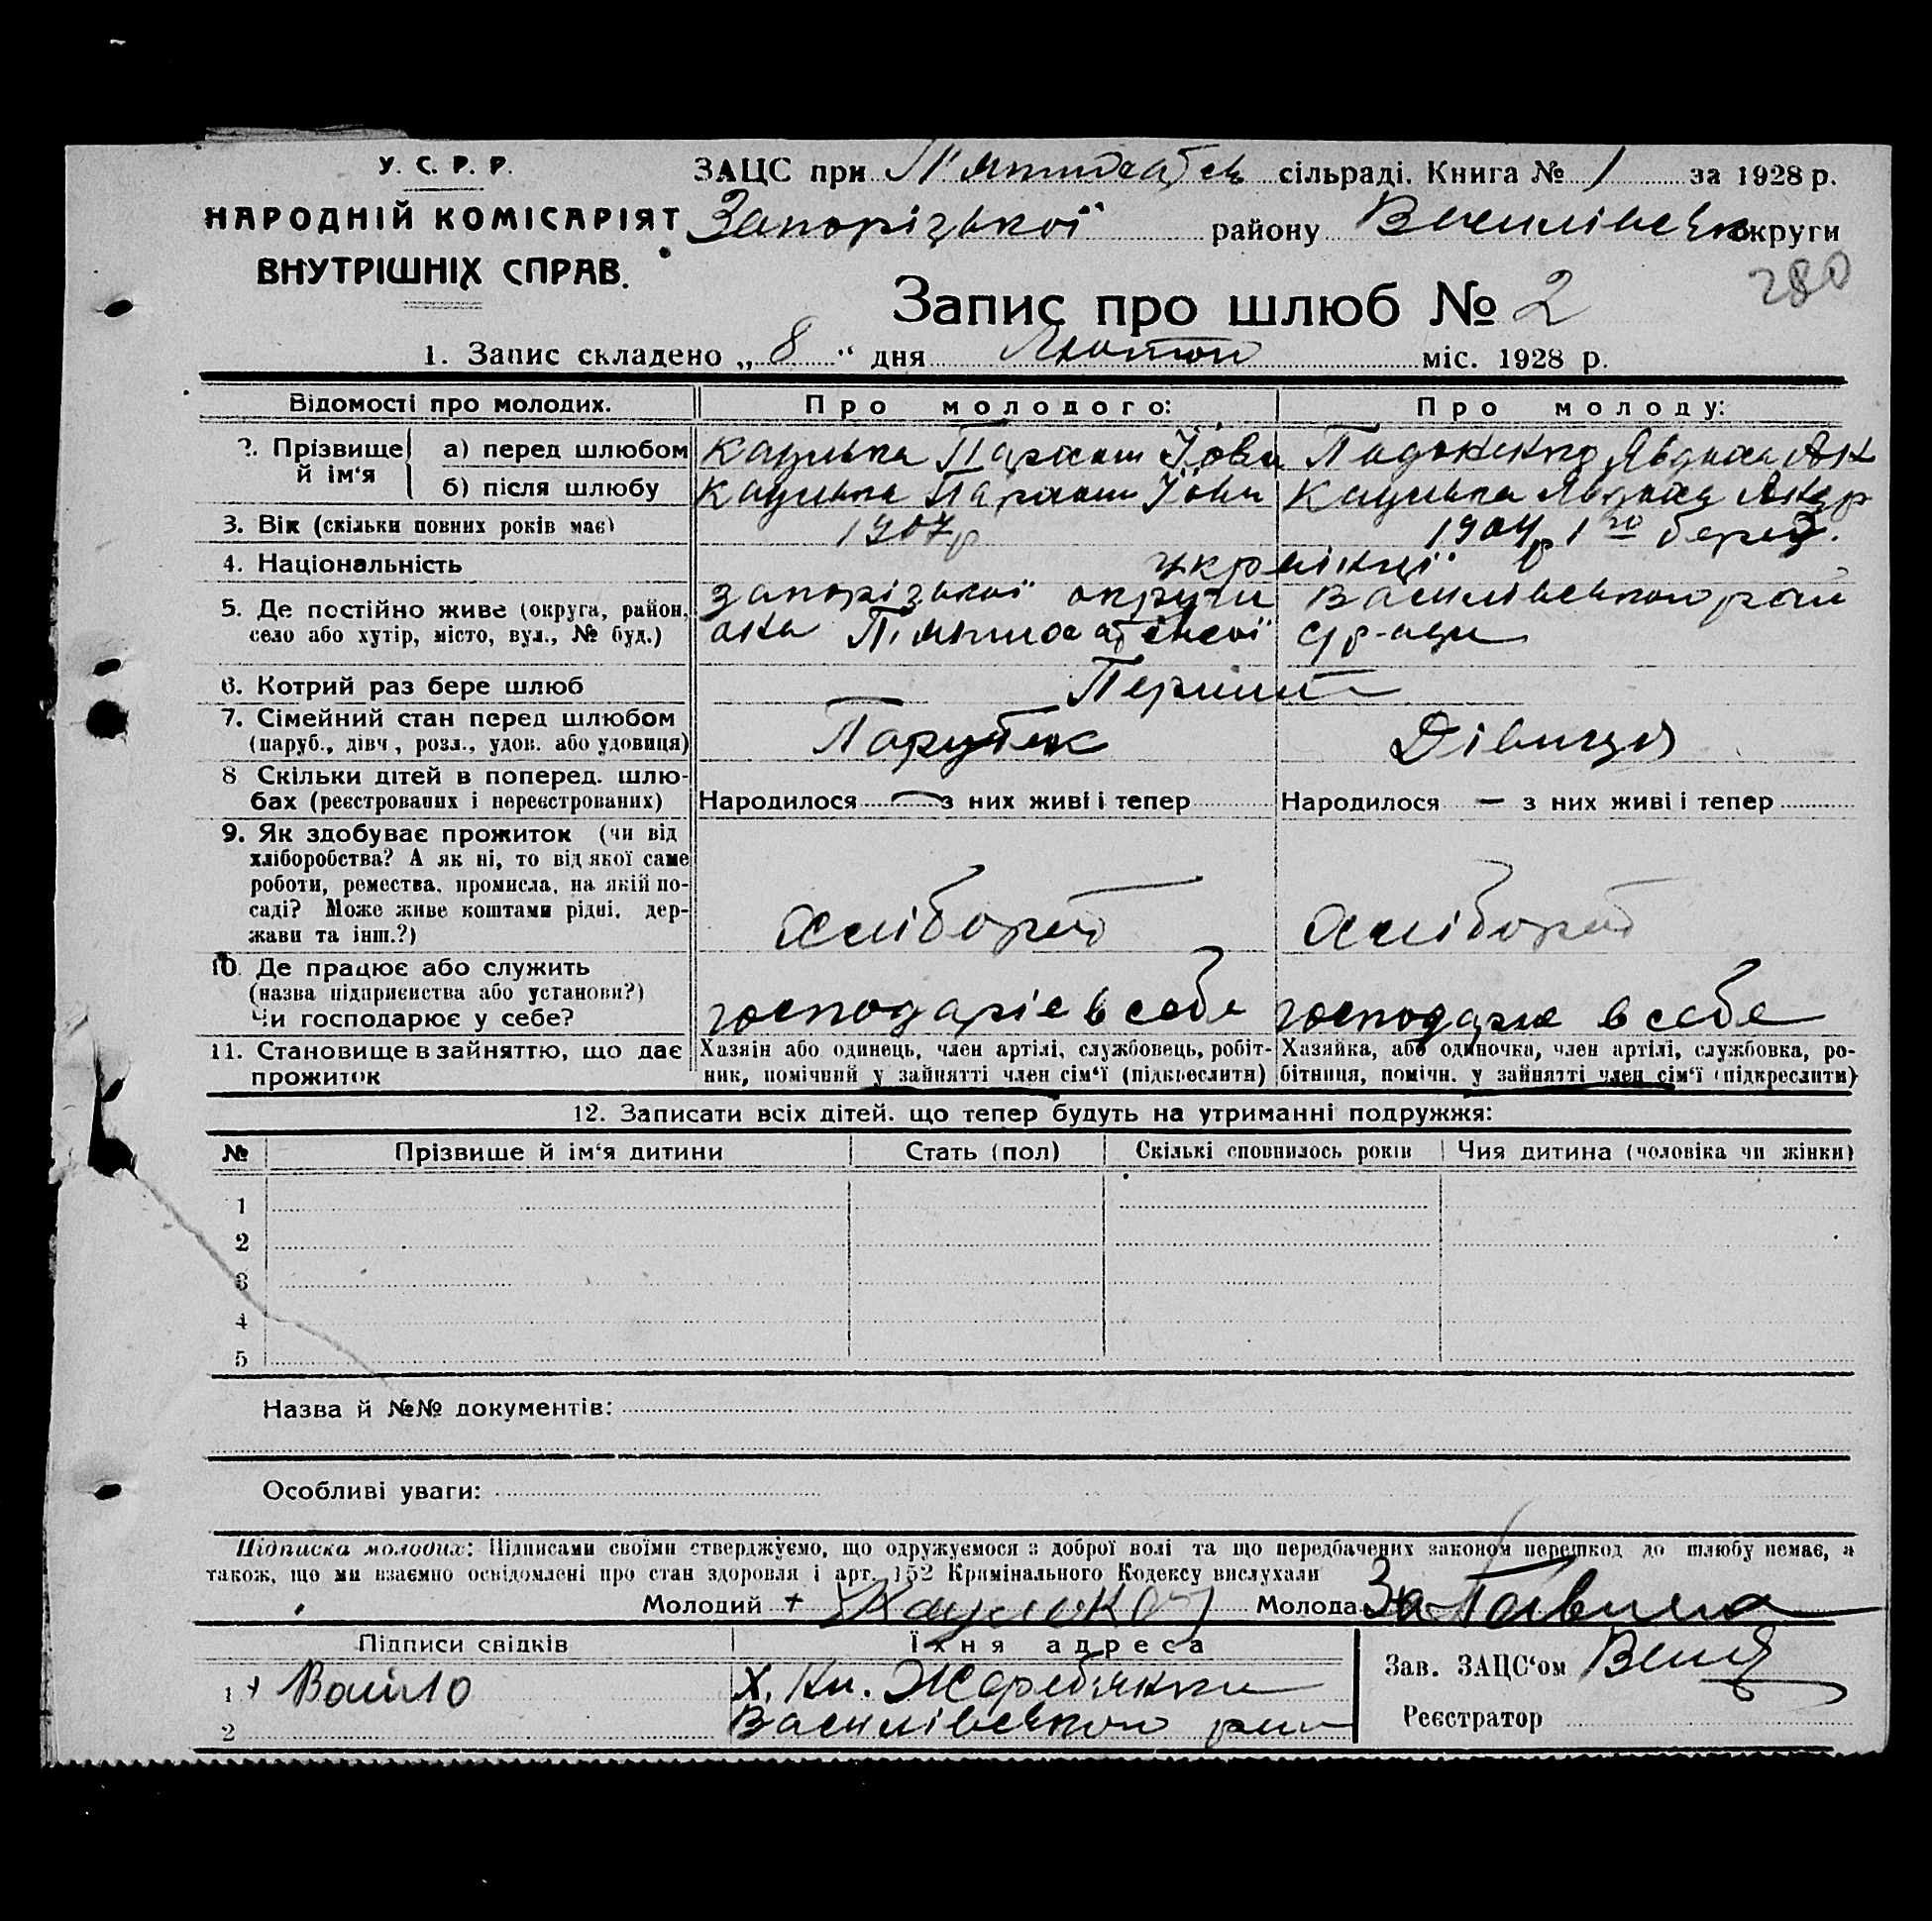 У. С. Р. Р.
НАРОДНІЙ КОМІСАРІЯТ
ВНУТРІШНІХ СПРАВ.
ЗАЦС при сільраді. Книга № 1 за 1928 р.
Запорізької району Василівськ округи
280
Запис про шлюб № 2
1. Запис складено „ 8 “ дня Лютого міс. 1928 р.
Відомості про молодих. Про молодого: Про молоду:
2. Прізвище й ім'я
а) перед шлюбом
б) після шлюбу
3. Вік (скільки повних років має) 1907р 1904р 1го берез.
4. Національність українці
5. Де постійно живе (округа, район, село або хутір, місто, вул., № буд.)
запорізької округи Василівського рай
6. Котрий раз бере шлюб Перший
7. Сімейний стан перед шлюбом
(паруб., дівч, розл., удов. або удовиця) Парубок Дівиця
8 Скільки дітей в поперед. шлю-
бах (реєстрованих і нереєстрованих) Народилося — з них живі і тепер Народилося — з них живі і тепер
9. Як здобуває прожиток (чи від
хліборобства? А як ні, то від якої саме
роботи, ремества, промисла, на якій по-
саді? Може живе коштами рідні, дер-
жави та інш.?)
хлібороб хлібороб
10. Де працює або служить
(назва підприємства або установи?)
Чи господарює у себе?
господаріє в себе господарює в себе
11. Становище в зайняттю, що дає
прожиток
Хазяін або одинець, член артілі, службовець, робіт-
ник, помічний у зайнятті член сім‘ї (підкреслити)
Хазяйка, або одиночка, член артілі, службовка, ро-
бітниця, помічн. у зайнятті член сім‘ї (підкреслити)
12. Записати всіх дітей, що тепер будуть на утриманні подружжя:
№ Прізвише й ім‘я дитини Стать (пол) Скількі сповнилось років Чия дитина (чоловіка чи жінки)
1
2
3
4
5
Назва й №№ документів:
Особливі уваги:
Підписка молодих: Підписами своїми стверджуємо, що одружуємося з доброї волі та що передбачених законом перешкод до шлюбу немає, а
також, що ми взаємно освідомлені про стан здоровля і арт. 152 Кримінального Кодексу вислухали
Молодий + Молода За
Підписи свідків Їхня адреса
Зав. ЗАЦС‘ом
1 + х.
2 Василівського рай
Реєстратор